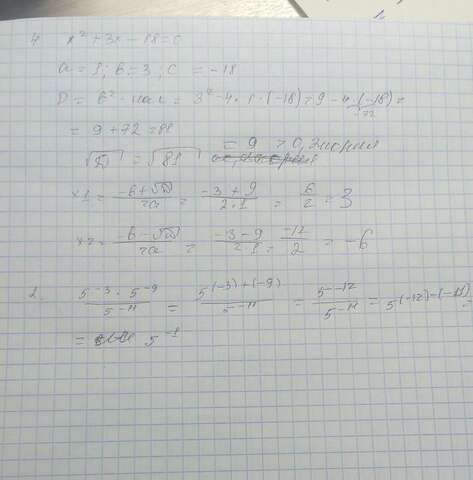 x² + 3x - 18 = 0
a = 1; b = 3; c = -18
D = b² - 4ac = 3² - 4 · 1 · (-18) = 9 - 4 · (-18) =
= 9 + 72 = 81
√D = √81 = 9 > 0, 2 корня
x1 = (-b + √D)/2a = (-3 + 9)/(2 · 1) = 6/2 = 3
x2 = (-b - √D)/2a = (-3 - 9)/(2 · 1) = -12/2 = -6
2. (5⁻³ · 5⁻⁹)/5⁻¹¹ = 5^((-3)+(-9))/5⁻¹¹ = 5⁻¹²/5⁻¹¹ = 5^((-12)-(-11)) =
= 5⁻¹